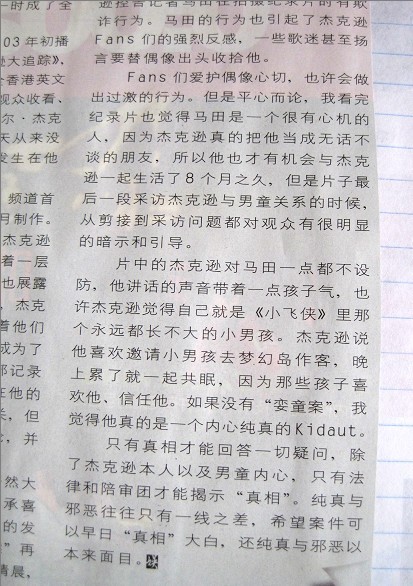 时成了全
03年初播
大追踪》,
香港英文
观众收看、
尔·杰克
天从来没
发生在他
频道首
月制作。
杰克逊
着一层
也展露
杰克
着他们
成为了
部记录
在他的
但
并
然大
承喜
的发
”再
逊控告记者马田在拍摄纪录片的有欺
诈行为。马田的行为也引起了杰克逊
Fans 们的强烈反感，一些歌迷甚至扬
言要替偶像出头收拾他。
Fans 们爱护偶像心切，也许会做
出过激的行为。但是平心而论，我看完
纪录片也觉得马田是一个很有心机的
人，因为杰克逊真的把他当成无话不
谈的朋友，所以他也才有机会与杰克
逊一起生活了8个月之久，但是片子最
后一段采访杰克逊与男童关系的时候，
从剪接到采访问题都对观众有很明显
的暗示和引导。
片中的杰克逊对马田一点都不设
防，他讲话的声音带着一点孩子气，也
许杰克逊觉得自己就是《小飞侠》里那
个永远都长不大的小男孩。杰克逊说
他喜欢邀请小男孩去梦幻岛作客，晚
上累了就一起共眠，因为那些孩子喜
欢他、信任他。如果没有“娈童案”，我
觉得他真的是一个内心纯真的Kidaut。
只有真相才能回答一切疑问，除
了杰克逊本人以及男童内心，只有法
律和陪审团才能揭示“真相”。纯真与
邪恶往往只有一线之差，希望案件可
以早日“真相”大白，还纯真与邪恶以
本来面目。